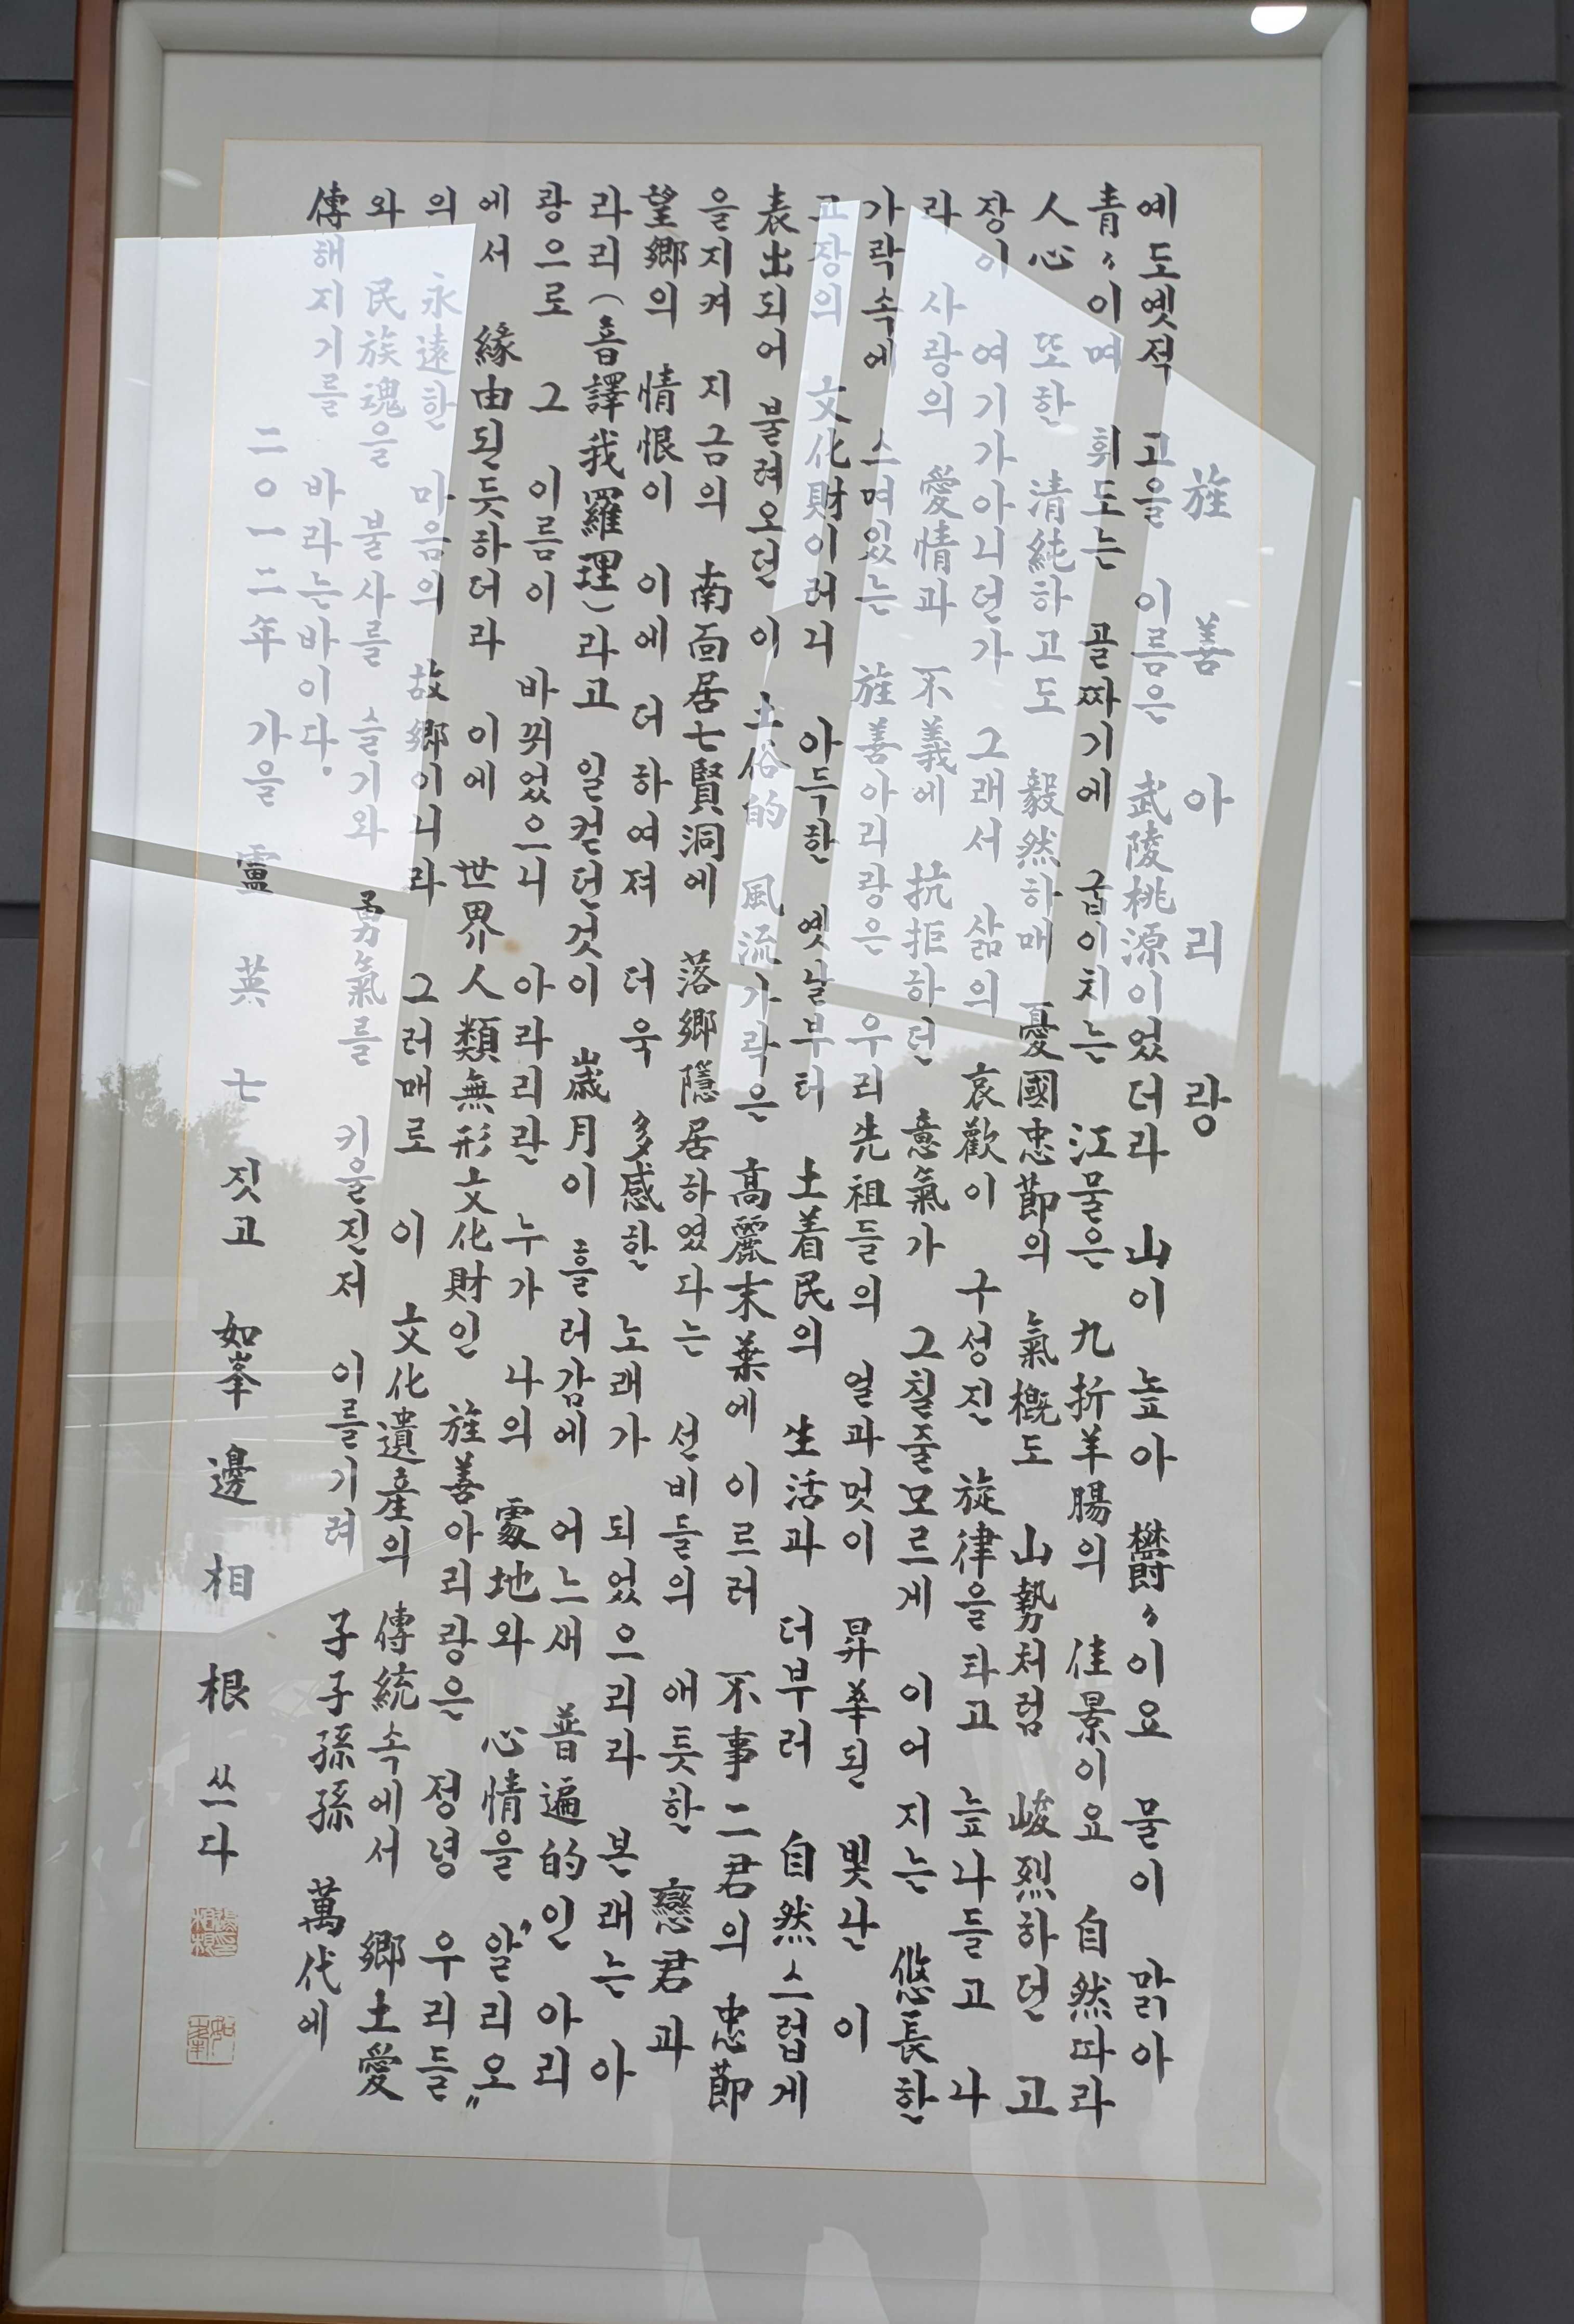 旌善아리랑
예도옛적 고을 이름은 武陵桃源이었더라 山이 높아 欝々이요 물이 맑아
青々이며 휘도는 골짜기에 굽이치는 江물은 九折羊腸의 佳景이요 自然따라
人心 또한 清純하고도 毅然하매 憂國忠節의 氣槪도 山勢처럼 峻烈하던 고
장이 여기가아니던가 그래서 삶의 哀歡이 구성진 旋律을타고 넘나들고 나
라 사랑의 愛情과 不義에 抗拒하던 意氣가 그칠줄모르게 이어 지는 悠長한
가락속에 스며있는 旌善아리랑은 우리先祖들의 얼과멋이 昇華된 빛난 이
고장의 文化財이러니 아득한 옛날부터 土着民의 生活과 더부러 自然스럽게
表出되어 불려오던 이 土俗的 風流가락은 高麗末葉에 이르러 不事二君의 忠節
을지켜 지금의 南面居七賢洞에 落鄕隱居하였다는 선비들의 애틋한 戀君과
望鄕의 情恨이 이에 더하여져 더욱 多感한 노래가 되었으리라 본래는 아
라리(音譯我羅理)라고 일컫던것이 歲月이 흘러감에 어느새 普遍的인 아리
랑으로 그 이름이 바뀌었으니 아라리란 누가 나의 處地와 心情을 "알리오"
에서 緣由된듯하더라 이에 世界人類無形文化財인 旌善아리랑은 정녕 우리들
의 永遠한 마음의 故鄕이니라 그러매로 이 文化遺産의 傳統속에서 鄕土愛
와 民族魂을 불사를 슬기와 勇氣를 키울진저 이를기려 子子孫孫 萬代에
傳해지기를 바라는바이다.
二〇一二年 가을 盧英七 짓고 如峯 邊相根 쓰다